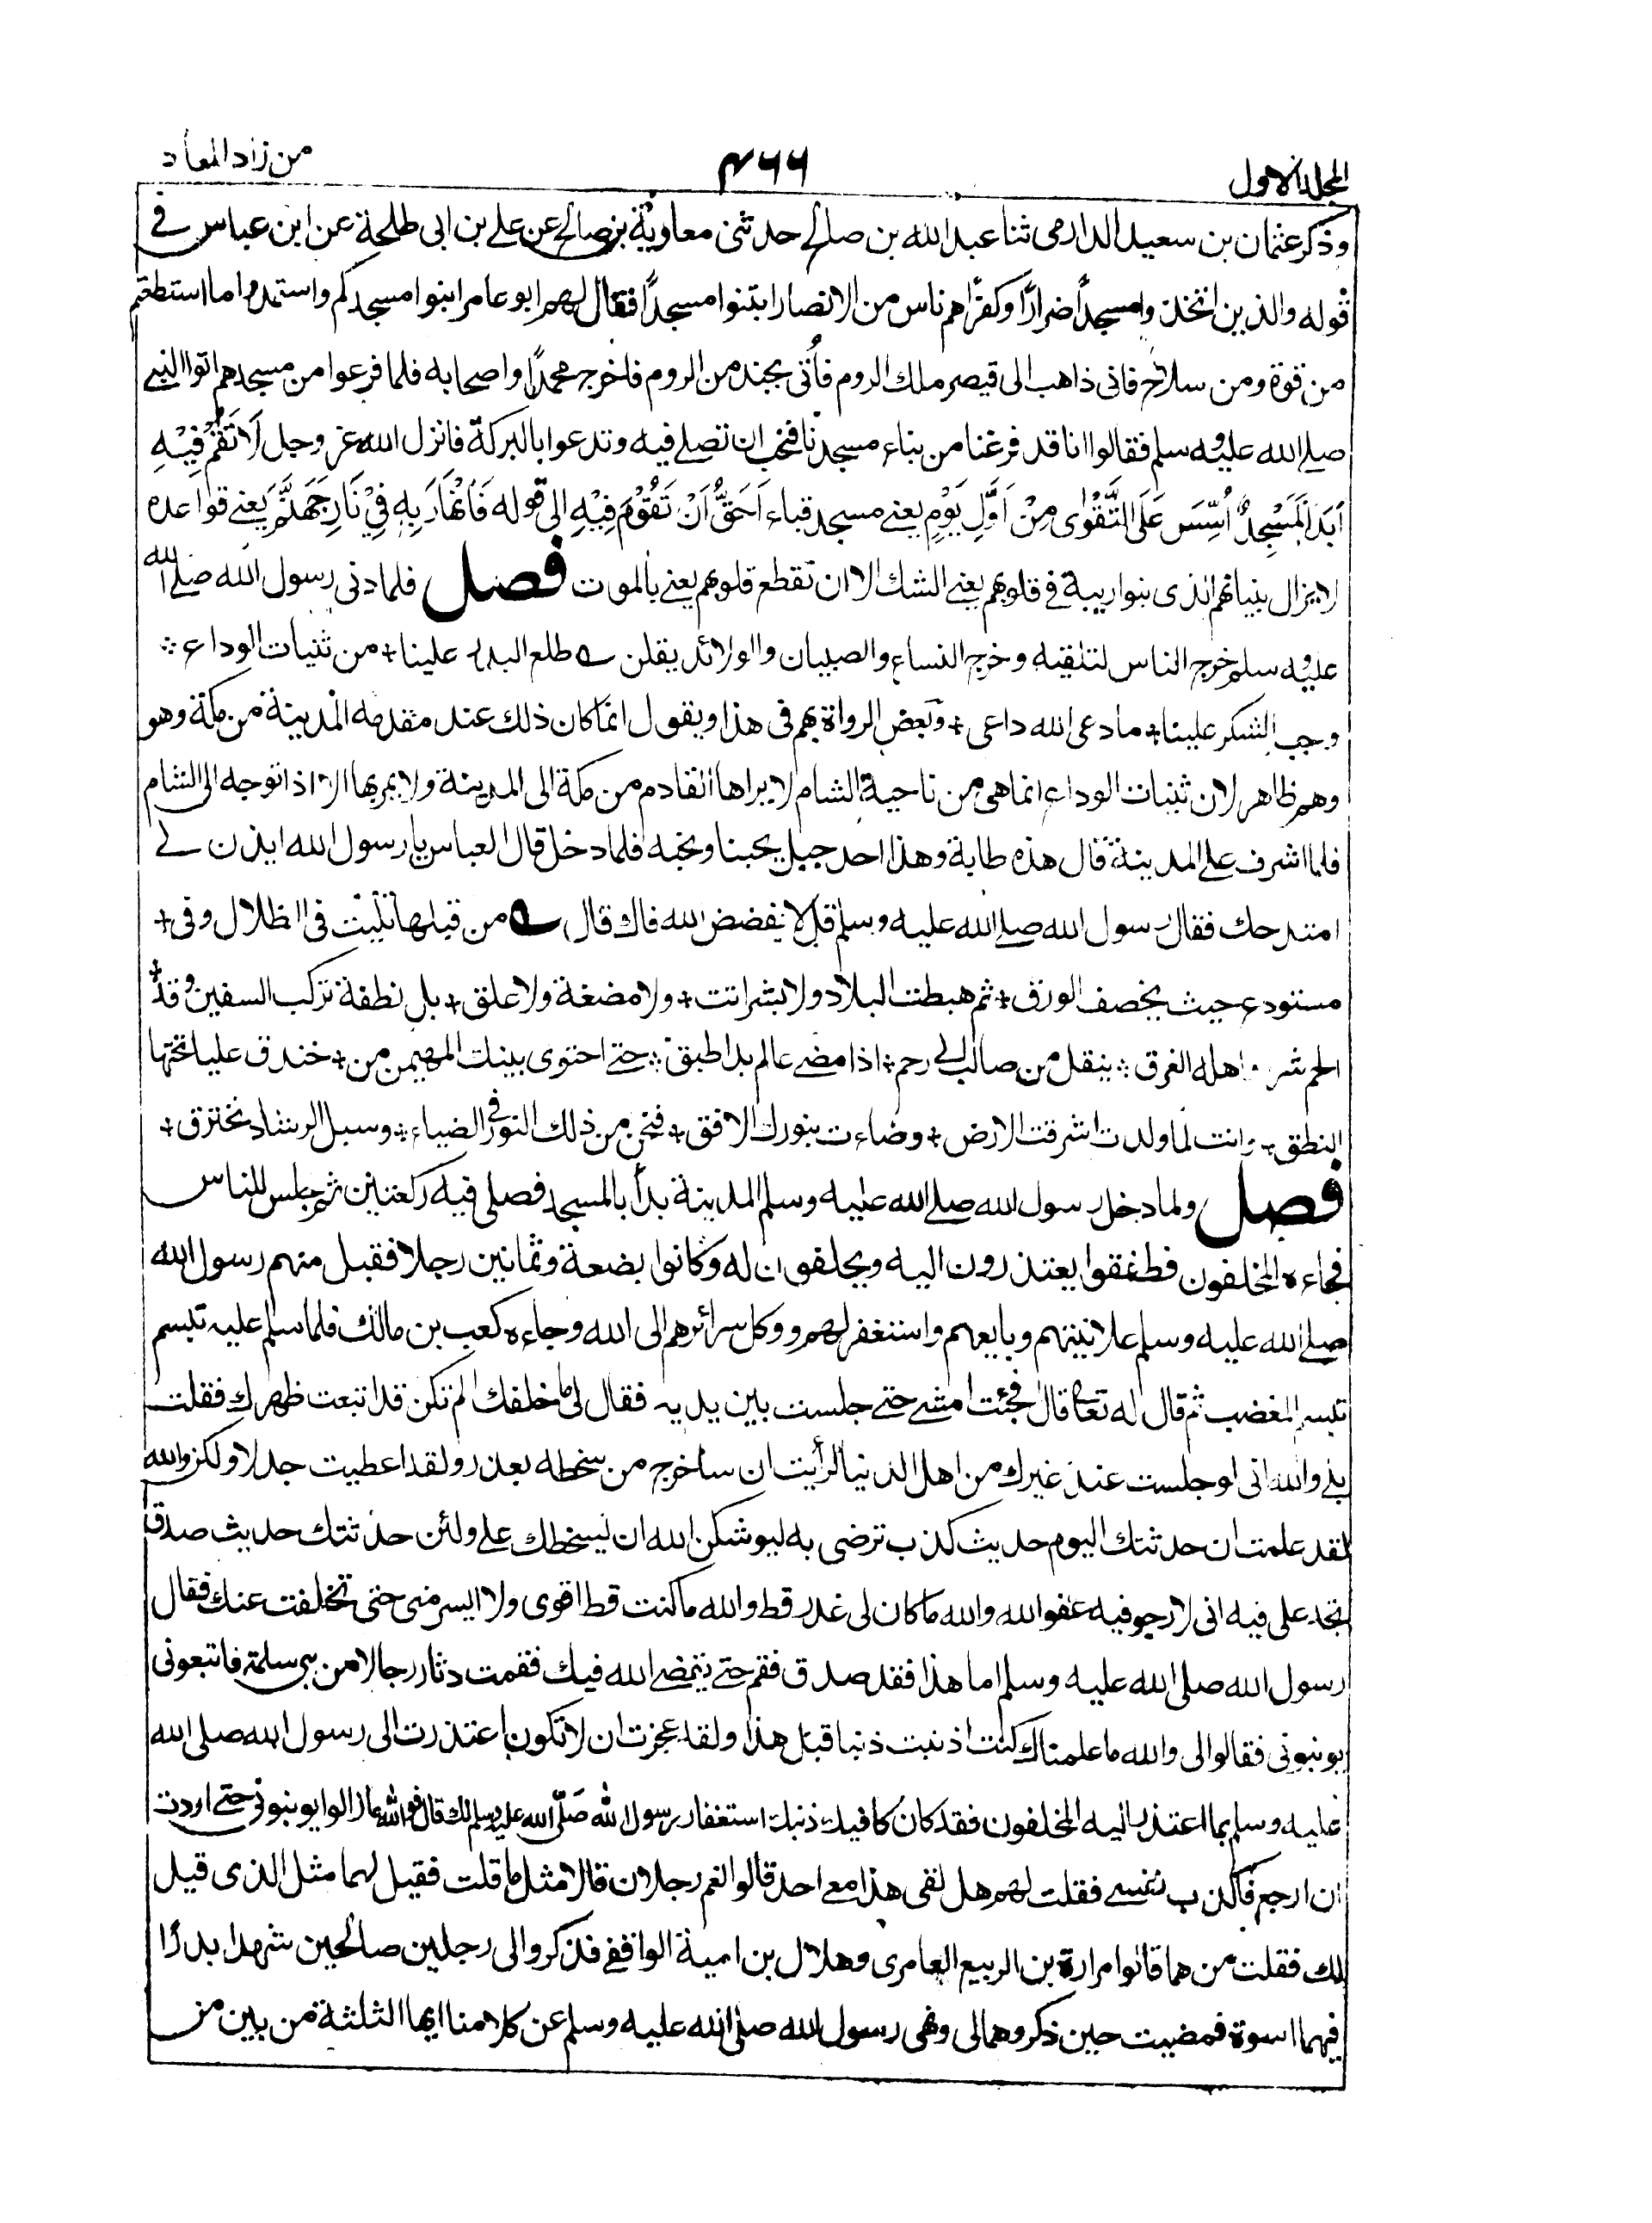 المجلد الاول
٤٦٦
من زاد المعاد
وذكر عثمان بن سعيد الدارمى ثنا عبد الله بن صالح حدثنى معاوية بن صالح عن على بن ابى طلحة عن ابن عباس فى
قوله والذين اتخذوا مسجداً ضراراً وكفراً هم ناس من الانصار ابتنوا مسجداً فقال لهم ابو عامر ابنوا مسجدكم واستمدوا ما استطعتم
من قوة ومن سلاح فانى ذاهب الى قيصر ملك الروم فأتى بجند من الروم فاخرج محمداً واصحابه فلما فرغوا من مسجدهم اتوا النبى
صلى الله عليه وسلم فقالوا انا قد فرغنا من بناء مسجدنا فنحب ان تصلى فيه وتدعوا بالبركة فانزل الله عز وجل لَا تَقُمْ فِيْهِ
اَبَدًا لَمَسْجِدٌ اُسِّسَ عَلَى التَّقْوٰى مِنْ اَوَّلِ يَوْمٍ يعنى مسجد قباء اَحَقُّ اَنْ تَقُوْمَ فِيْهِ الى قوله فَانْهَارَ بِهٖ فِيْ نَارِ جَهَنَّمَ يعنى قواعده
لا يزال بنيانهم الذى بنوا ريبة فى قلوبهم يعنى الشك الا ان تقطع قلوبهم يعنى بالموت فصل فلما دنى رسول الله صلى الله
عليه وسلم خرج الناس لتلقيه وخرج النساء والصبيان والولائد يقلن ے طلع البدر علينا + من ثنيات الوداع ∴
وجب الشكر علينا + ما دعى الله داعى + وبعض الرواة يهم فى هذا ويقول انما كان ذلك عند مقدمه المدينة من مكة وهو
وهم ظاهر لان ثنيات الوداع انما هى من ناحية الشام لا يراها القادم من مكة الى المدينة ولا يمر بها الا اذا توجه الى الشام
فلما اشرف على المدينة قال هذه طابة وهذا احد جبل يحبنا ونحبه فلما دخل قال العباس يا رسول الله ايذن لے
امتدحك فقال رسول الله صلى الله عليه وسلم قل لا يفضض الله فاك قال ے من قبلها طبت فى الظلال وفى +
مستودع حيث يخصف الورق + ثم هبطت البلاد ولا بشر انت + ولا مضغة ولا علق + بل نطفة تركب السفين وقد
الجم نسرا واهله الغرق ∴ ينقل من صالب الى رحم + اذا مضى عالم بدا طبق ∴ حتى احتوى بيتك المهيمن من + خندق عليا تحتها
النطق + وانت لما ولدت اشرقت الارض + وضاءت بنورك الافق + فنحن من ذلك النور فى الضياء + وسبل الرشاد نخترق +
فصل ولما دخل رسول الله صلى الله عليه وسلم المدينة بدأ بالمسجد فصلى فيه ركعتين ثم جلس للناس
فجاءه المخلفون فطفقوا يعتذرون اليه ويحلفون له وكانوا بضعة وثمانين رجلا فقبل منهم رسول الله
صلى الله عليه وسلم علانيتهم وبايعهم واستغفر لهم ووكل سرائرهم الى الله وجاءه كعب بن مالك فلما سلم عليه تبسم
تبسم المغضب ثم قال له تعال قال فجئت امشى حتى جلست بين يديه فقال لى ما خلفك الم تكن قد ابتعت ظهرك فقلت
بلى والله انى لو جلست عند غيرك من اهل الدنيا لرأيت ان ساخرج من سخطه بعذر ولقد اعطيت جدلا ولكن والله
لقد علمت ان حدثتك اليوم حديث كذب ترضى به ليوشكن الله ان يسخطك على ولئن حدثتك حديث صدق
تجد على فيه انى لارجو فيه عفو الله والله ما كان لى عذر قط والله ما كنت قط اقوى ولا ايسر منى حتى تخلفت عنك فقال
رسول الله صلى الله عليه وسلم اما هذا فقد صدق فقم حتى يقضى الله فيك فقمت وثار رجالا من بنى سلمة فاتبعونى
يونبونى فقالوا لى والله ما علمناك كنت اذنبت ذنبا قبل هذا ولقد عجزت ان لا تكون اعتذرت الى رسول الله صلى الله
عليه وسلم بما اعتذر اليه المخلفون فقد كان كافيك ذنبك استغفار رسول الله صلى الله عليه وسلم لك قال فوالله ما زالوا يونبونى حتى اردت
ان ارجع فاكذب نفسى فقلت لهم هل لقى هذا معى احد قالوا نعم رجلان قالا مثل ما قلت فقيل لهما مثل الذى قيل
لك فقلت من هما قالوا مرارة بن الربيع العامرى وهلال بن امية الواقفى فذكروا لى رجلين صالحين شهدا بدراً
فيهما اسوة فمضيت حين ذكروهما لى ونهى رسول الله صلى الله عليه وسلم عن كلامنا ايها الثلثة من بين من